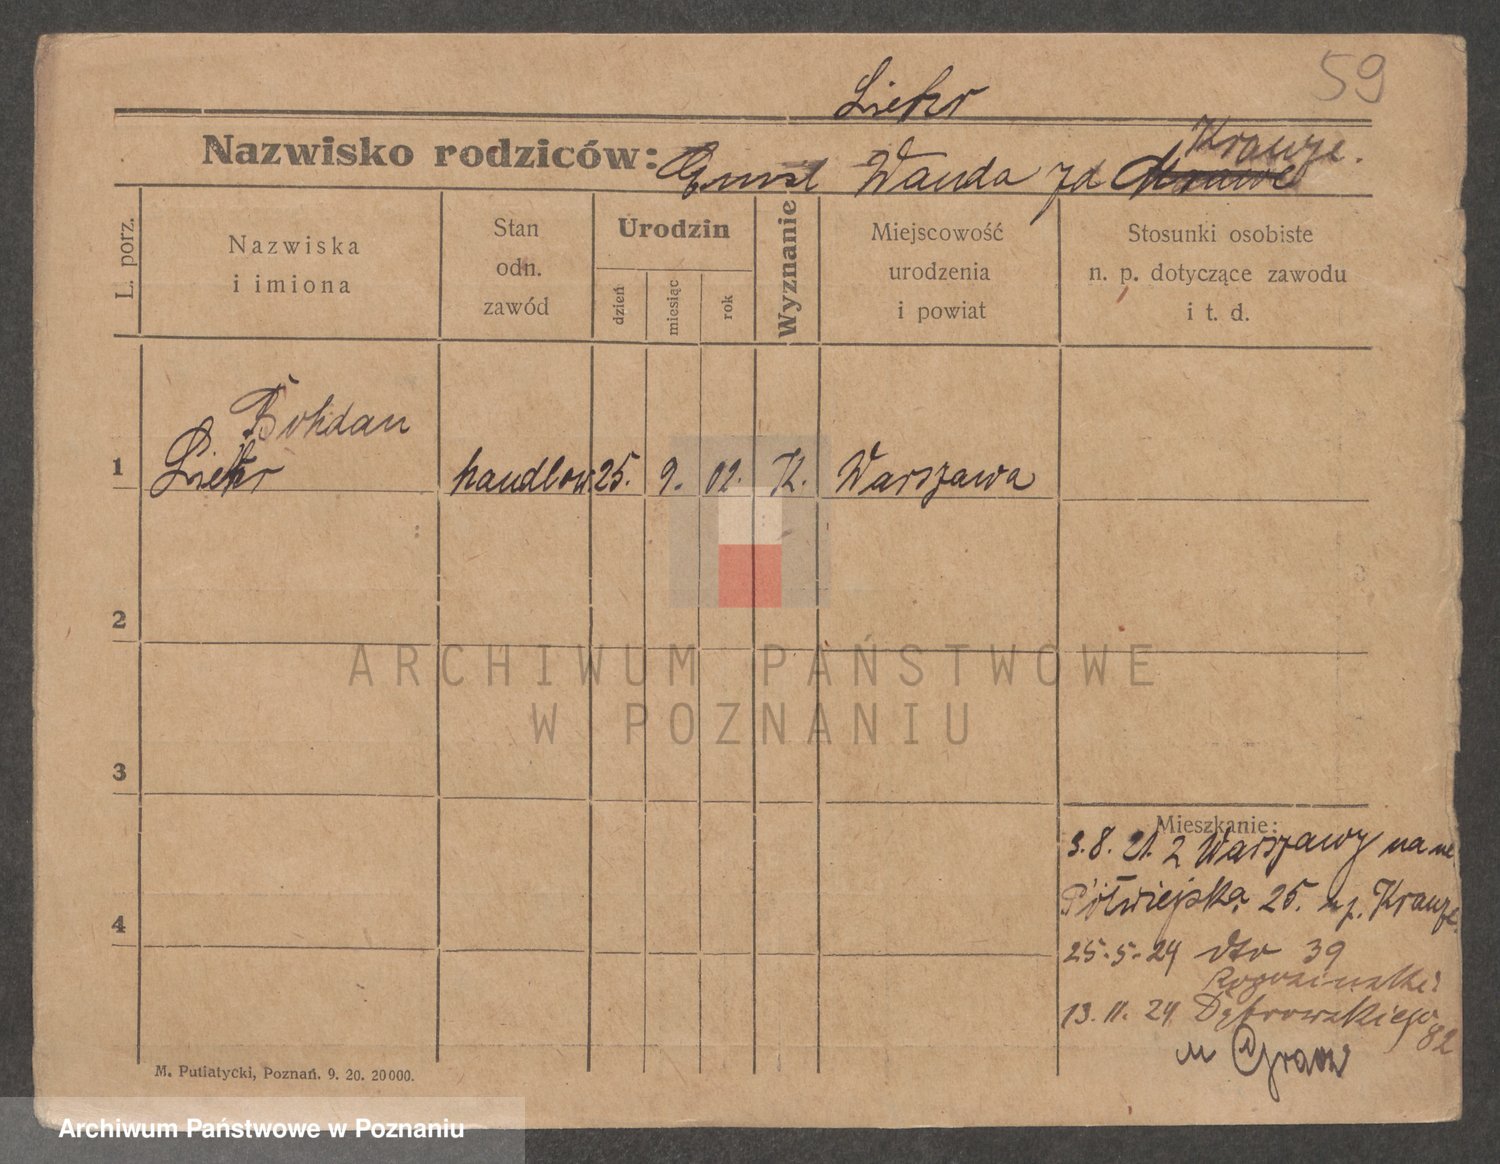 59
Liekr
Nazwisko rodziców: Ernst Wanda zd Krauze.
L. porz.
Nazwiska
i imiona
Stan
odn.
zawód
Urodzin
dzień
miesiąc
rok
Wyznanie
Miejscowość
urodzenia
i powiat
Stosunki osobiste
n. p. dotyczące zawodu
i t. d.
Bohdan
1 Liekr handlow. 25. 9. 02. K. Warszawa
2
3
4
Mieszkanie:
3. 8. 21. z Warszawy na
Półwiejska 25. Krauze
25-5-24 dto 39
13. 11. 24 Dąbrowskiego
82
M. Putiatycki, Poznań. 9. 20. 20000.
ARCHIWUM PAŃSTWOWE
W POZNANIU
Archiwum Państwowe w Poznaniu